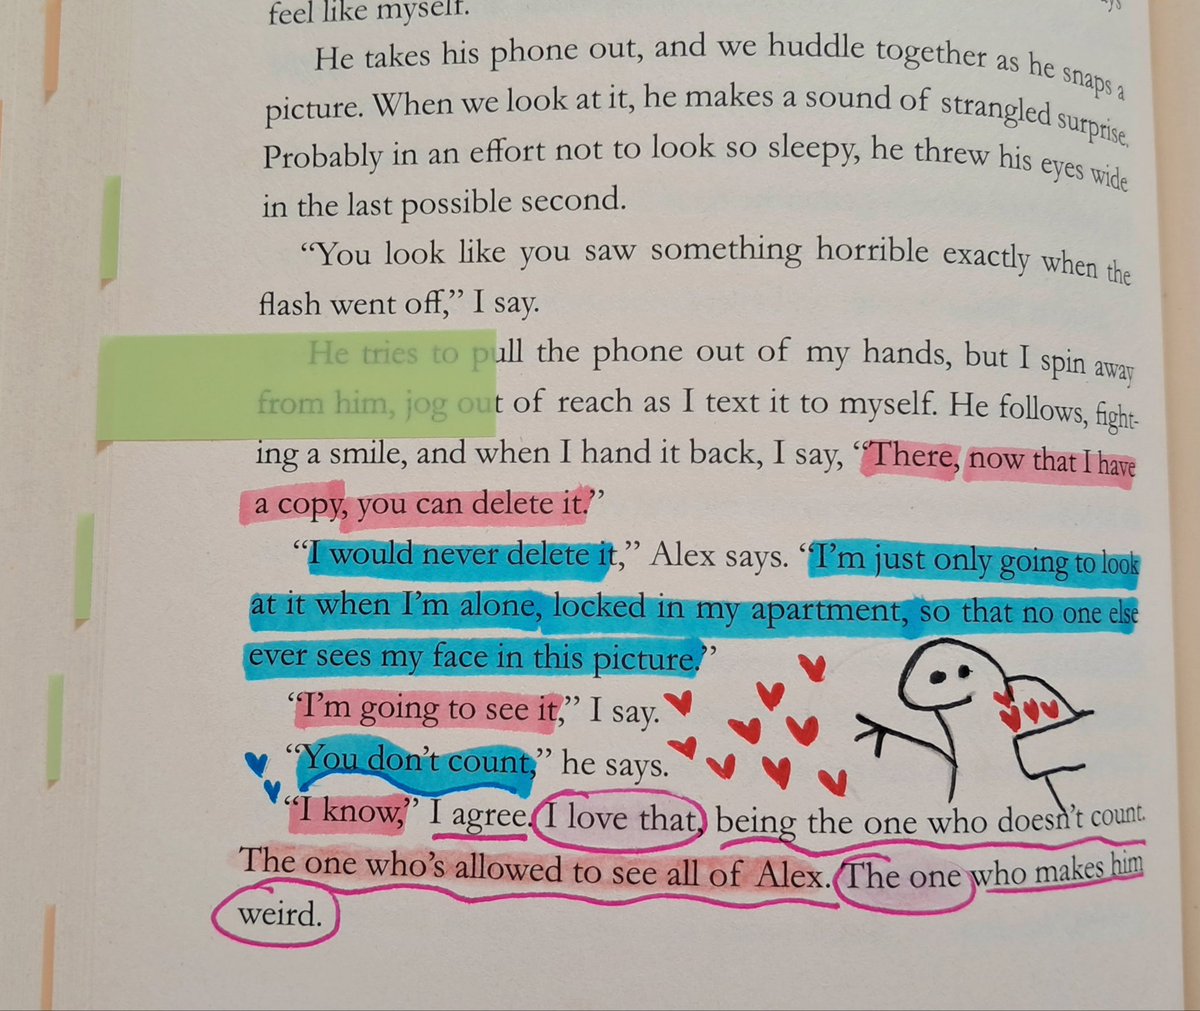 feel like myself.
He takes his phone out, and we huddle together as he snaps a
picture. When we look at it, he makes a sound of strangled surprise.
Probably in an effort not to look so sleepy, he threw his eyes wide
in the last possible second.
“You look like you saw something horrible exactly when the
flash went off,” I say.
He tries to pull the phone out of my hands, but I spin away
from him, jog out of reach as I text it to myself. He follows, fight-
ing a smile, and when I hand it back, I say, “There, now that I have
a copy, you can delete it.”
“I would never delete it,” Alex says. “I’m just only going to look
at it when I’m alone, locked in my apartment, so that no one else
ever sees my face in this picture.”
“I’m going to see it,” I say.
“You don’t count,” he says.
“I know,” I agree. I love that, being the one who doesn’t count.
The one who’s allowed to see all of Alex. The one who makes him
weird.